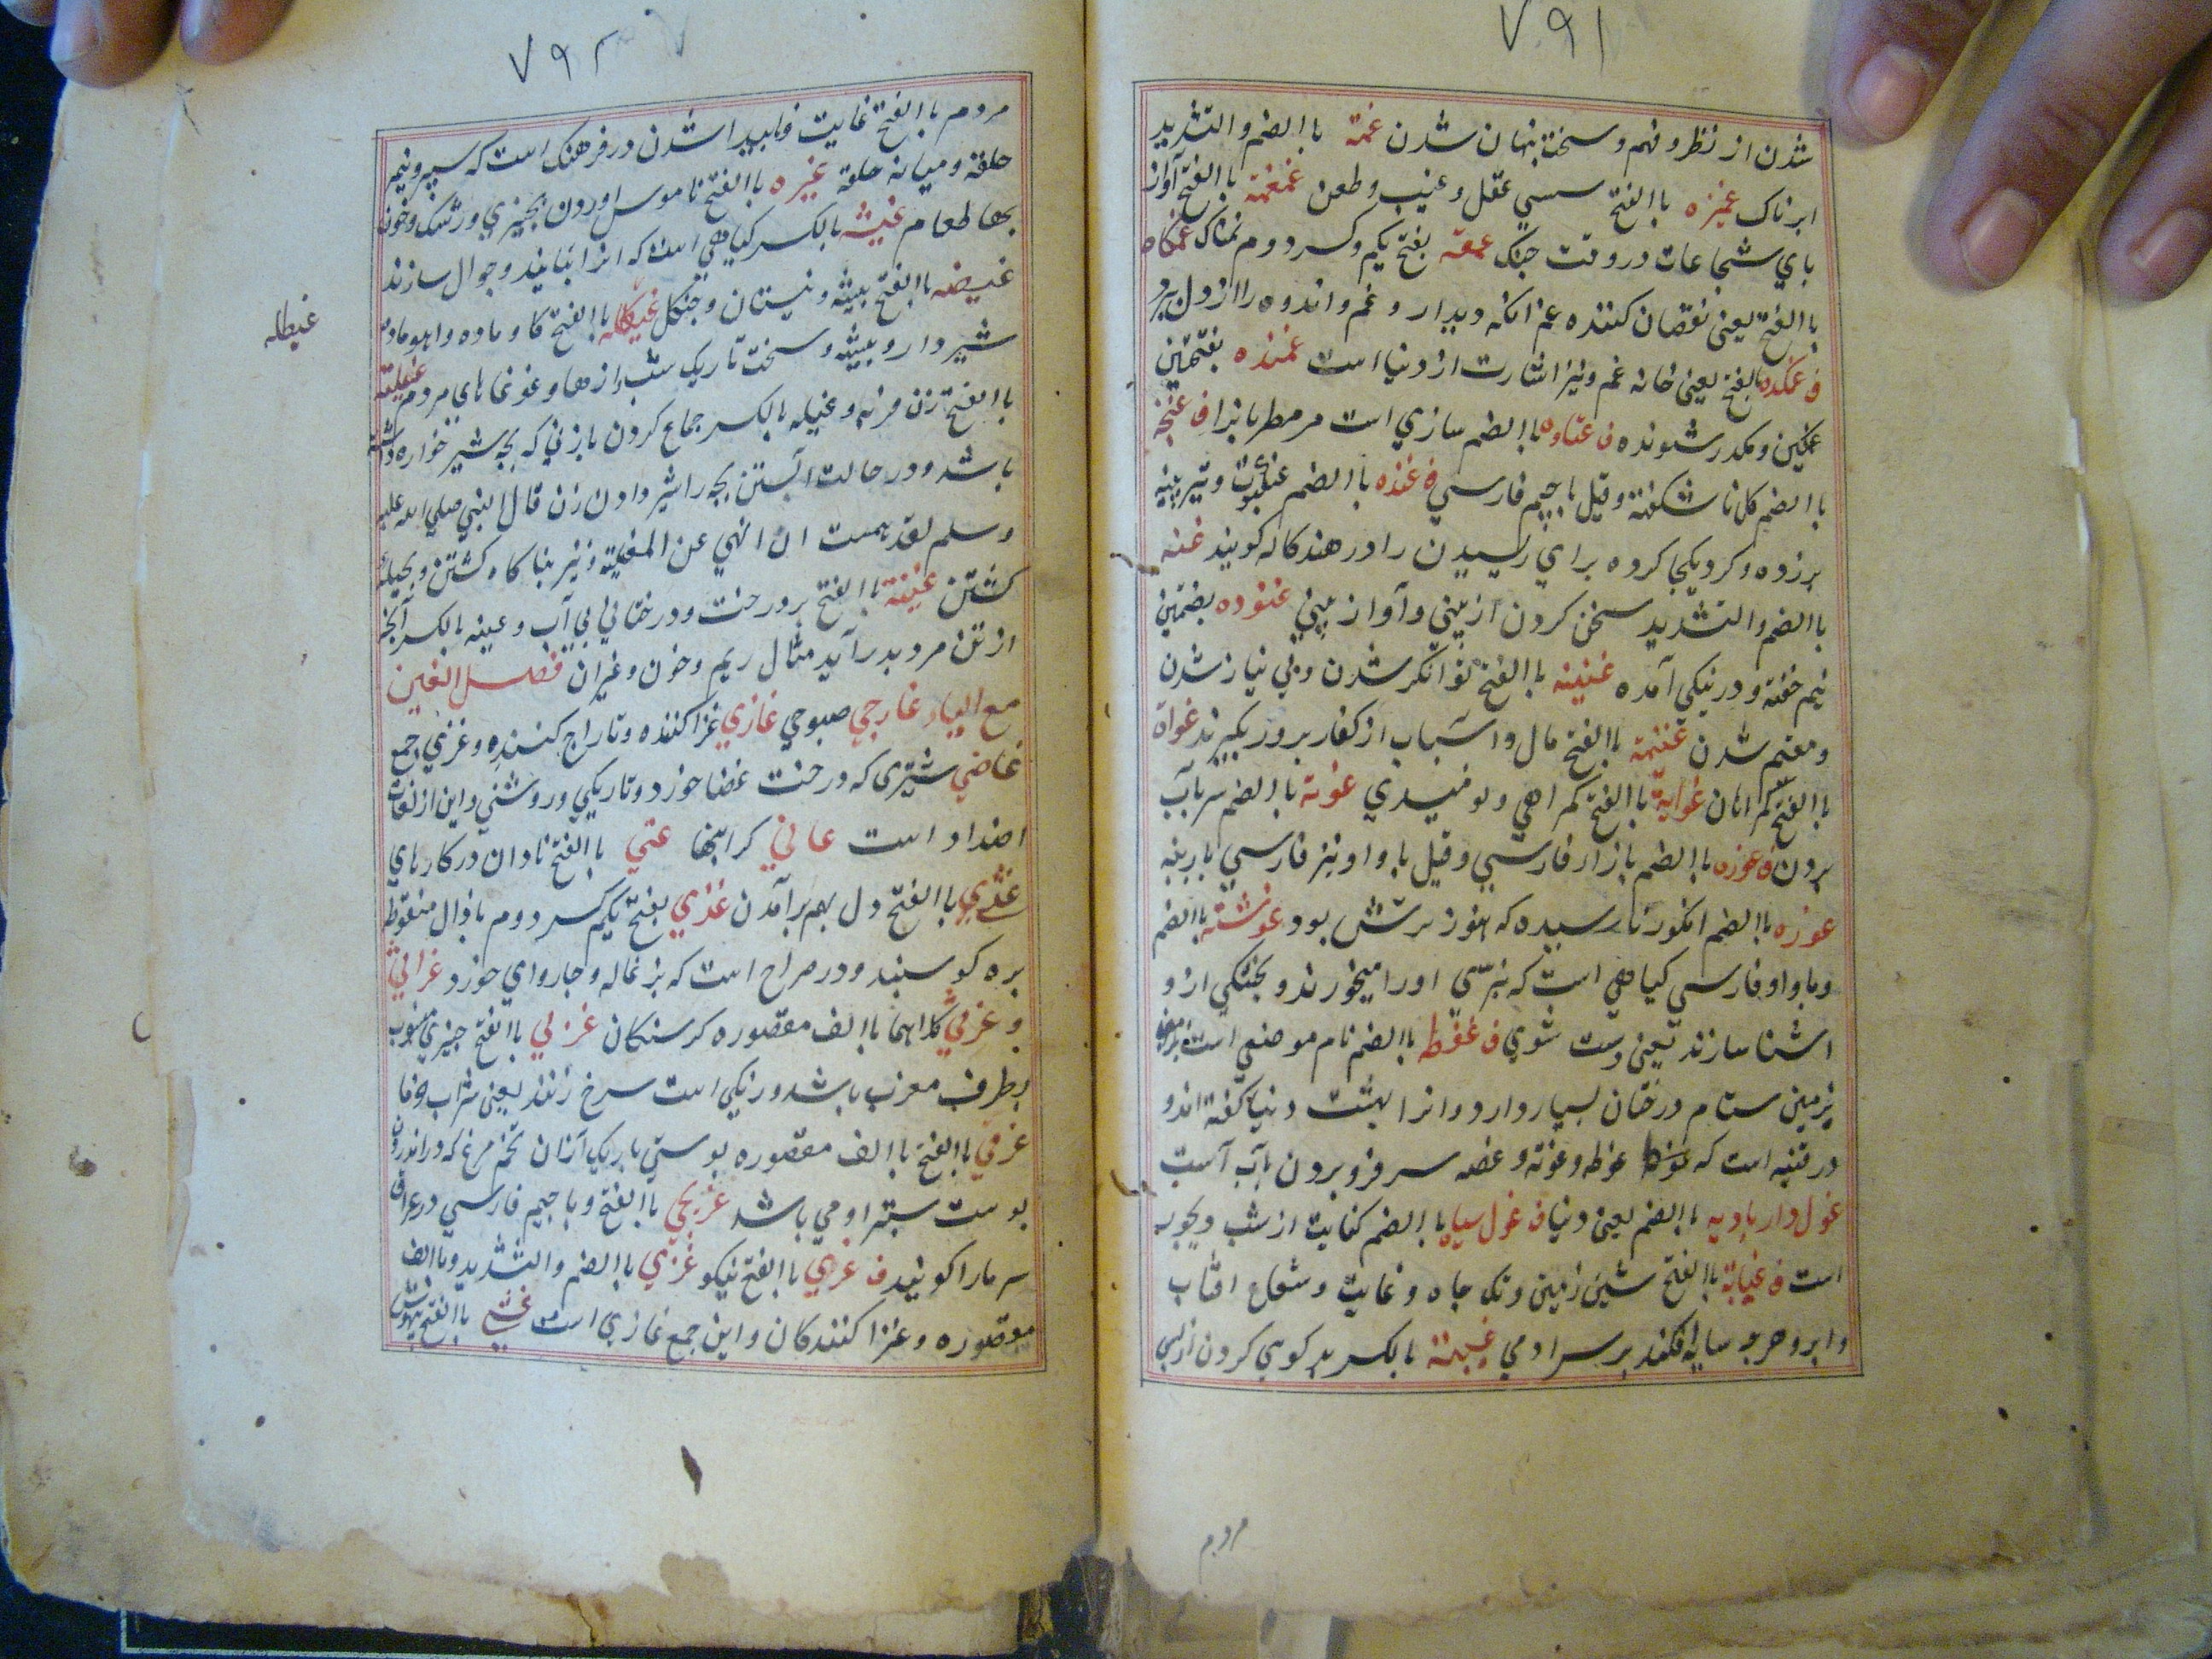 ۷۹۱
شدن از نظر و فهم و سخت پنهان شدن غمة باالضم والتشدید
ابرناک غمیزه باالفتح سستی عقل و عیب و طعن غمغمة باالفتح آواز
های شجاعان در وقت جنک غمقه بفتح یکم و کسر دوم نمناک غمکاه
باالفتح یعنی نقصان کننده غم انکه دیدار و غم و اندوه را از دل ببرد
ف غمکده بالفتح یعنی خانه غم و نیز اشارت از دنیا است غمنده بفتحتین
غمکین و مکدر شونده ف غناوه باالضم سازی است مر مطربانرا ف غنجه
باالضم کل ناشکفته و قیل با جیم فارسی ف غنده باالضم عنکبوت و نیز پنبه
برزده و کرد یکجا کرده برای ریسیدن را در هند کاله کویند غنه
باالضم والتشدید سخن کردن از بینی و آواز بینی غنوده بضمتین
نیم خفته و در نیکی آمده غنیه باالفتح توانکر شدن و بی نیاز شدن
و مغتنم شدن غنیمه باالفتح مال و اسباب از کفار بزور بکیرند غواة
باالفتح کمراهان غوایة باالفتح کمراهی و نومیدی غوته باالضم سر بآب
بردن ف غوزه باالضم بازار فارسی و قیل با واو نیز فارسی
غوره باالضم انکور نارسیده که هنوز ترش بود غوشته باالضم
و با واو فارسی کیاهی است که بترّی او را میخورند و بخشکی از و
اشنا سازند یعنی دست شوی ف غوطه باالضم نام موضعی است
بزمین شام درختان بسیار دارد و انرا بهشت دنیا کفته اند و
در قنیه است که غوطه و غوته و غصه سر فرو بردن بآب است
غول دار بادیه باالضم یعنی دنیا ف غول سیاه باالضم کنایت از شب دیجور
است ف غیابة باالفتح زمین و تک چاه و غایت و شعاع افتاب
و ابر و هرچه سایه افکند بر سر ادمی غیبة بالکسر بدکوی کردن از پس
مردم
۷۹۲
مردم باالفتح غایت و ناپیدا شدن در فرهنک است که سپر و نیم
حلقه و میانه حلقه غیره باالفتح ناموس اوردن بچیزی و رشک و خون
بها طعام غیشه بالکسر کیاهی است که انرا بتابند و جوال سازند
غیضه باالفتح بیشه و نیستان و جنکل غیطله باالفتح کاو ماده و اهو ماده
شیردار و بیشه و سخت تاریک شب و ازدها و غوغای مردم غیلة
باالفتح زن فربه و غیله بالکسر جماع کردن با زنی که بچه شیر خواره داشته
باشد و در حالت آبستن بچه را شیر دادن زن قال النبی صلی الله علیه
وسلم لقد هممت ان انهی عن الغیلة و نیز بناکاه کشتن و بحیله
کشتن غینة باالفتح بر درخت و درختانی بی آب و غینه بالکسر آنچه
از تن مرد بدر آید مثال ریم و خون و غیر ان فصل الغین
مع الیاء غارجی صبوحی غازی غزا کننده و تاراج کننده و غزی جمع
غاضی شتری که درخت غضا خورد و تاریکی و روشنی و این از لغات
اضداد است غانی کرانبها غبی باالفتح نادان در کارهای
غثی باالفتح دل بهم برآمدن غذی بفتح یکم کسر دوم با ذال منقوط
بره کوسپند و در صراح است که بزغاله و چاروای خورد غراثی
و غرثی کلاهما باالف مقصوره کرسنکان غربی باالفتح چیزی منسوب
بطرف مغرب باشد و رنکی است سرخ
غرقی باالفتح باالف مقصوره پوستی باریک ازان تخم مرغ که در اندرون
پوست ستبر او می باشد غریجی باالفتح و با جیم فارسی در عراق
سرما را کویند ف غری باالفتح نیکو غزی باالضم والتشدید و باالف
مقصوره و غزا کنندکان و این جمع غازی است غشی باالفتح بیهوش
غیطله